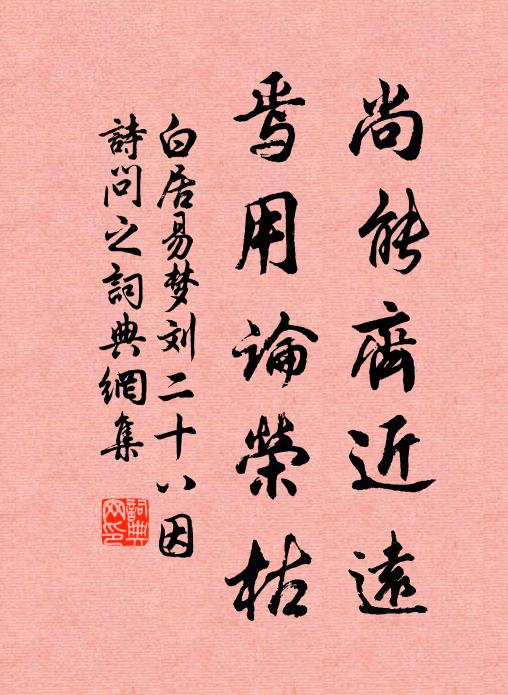 尚能齊近遠
焉用論榮枯
白居易梦刘二十八因
詩問之詞典網集
詞典网印